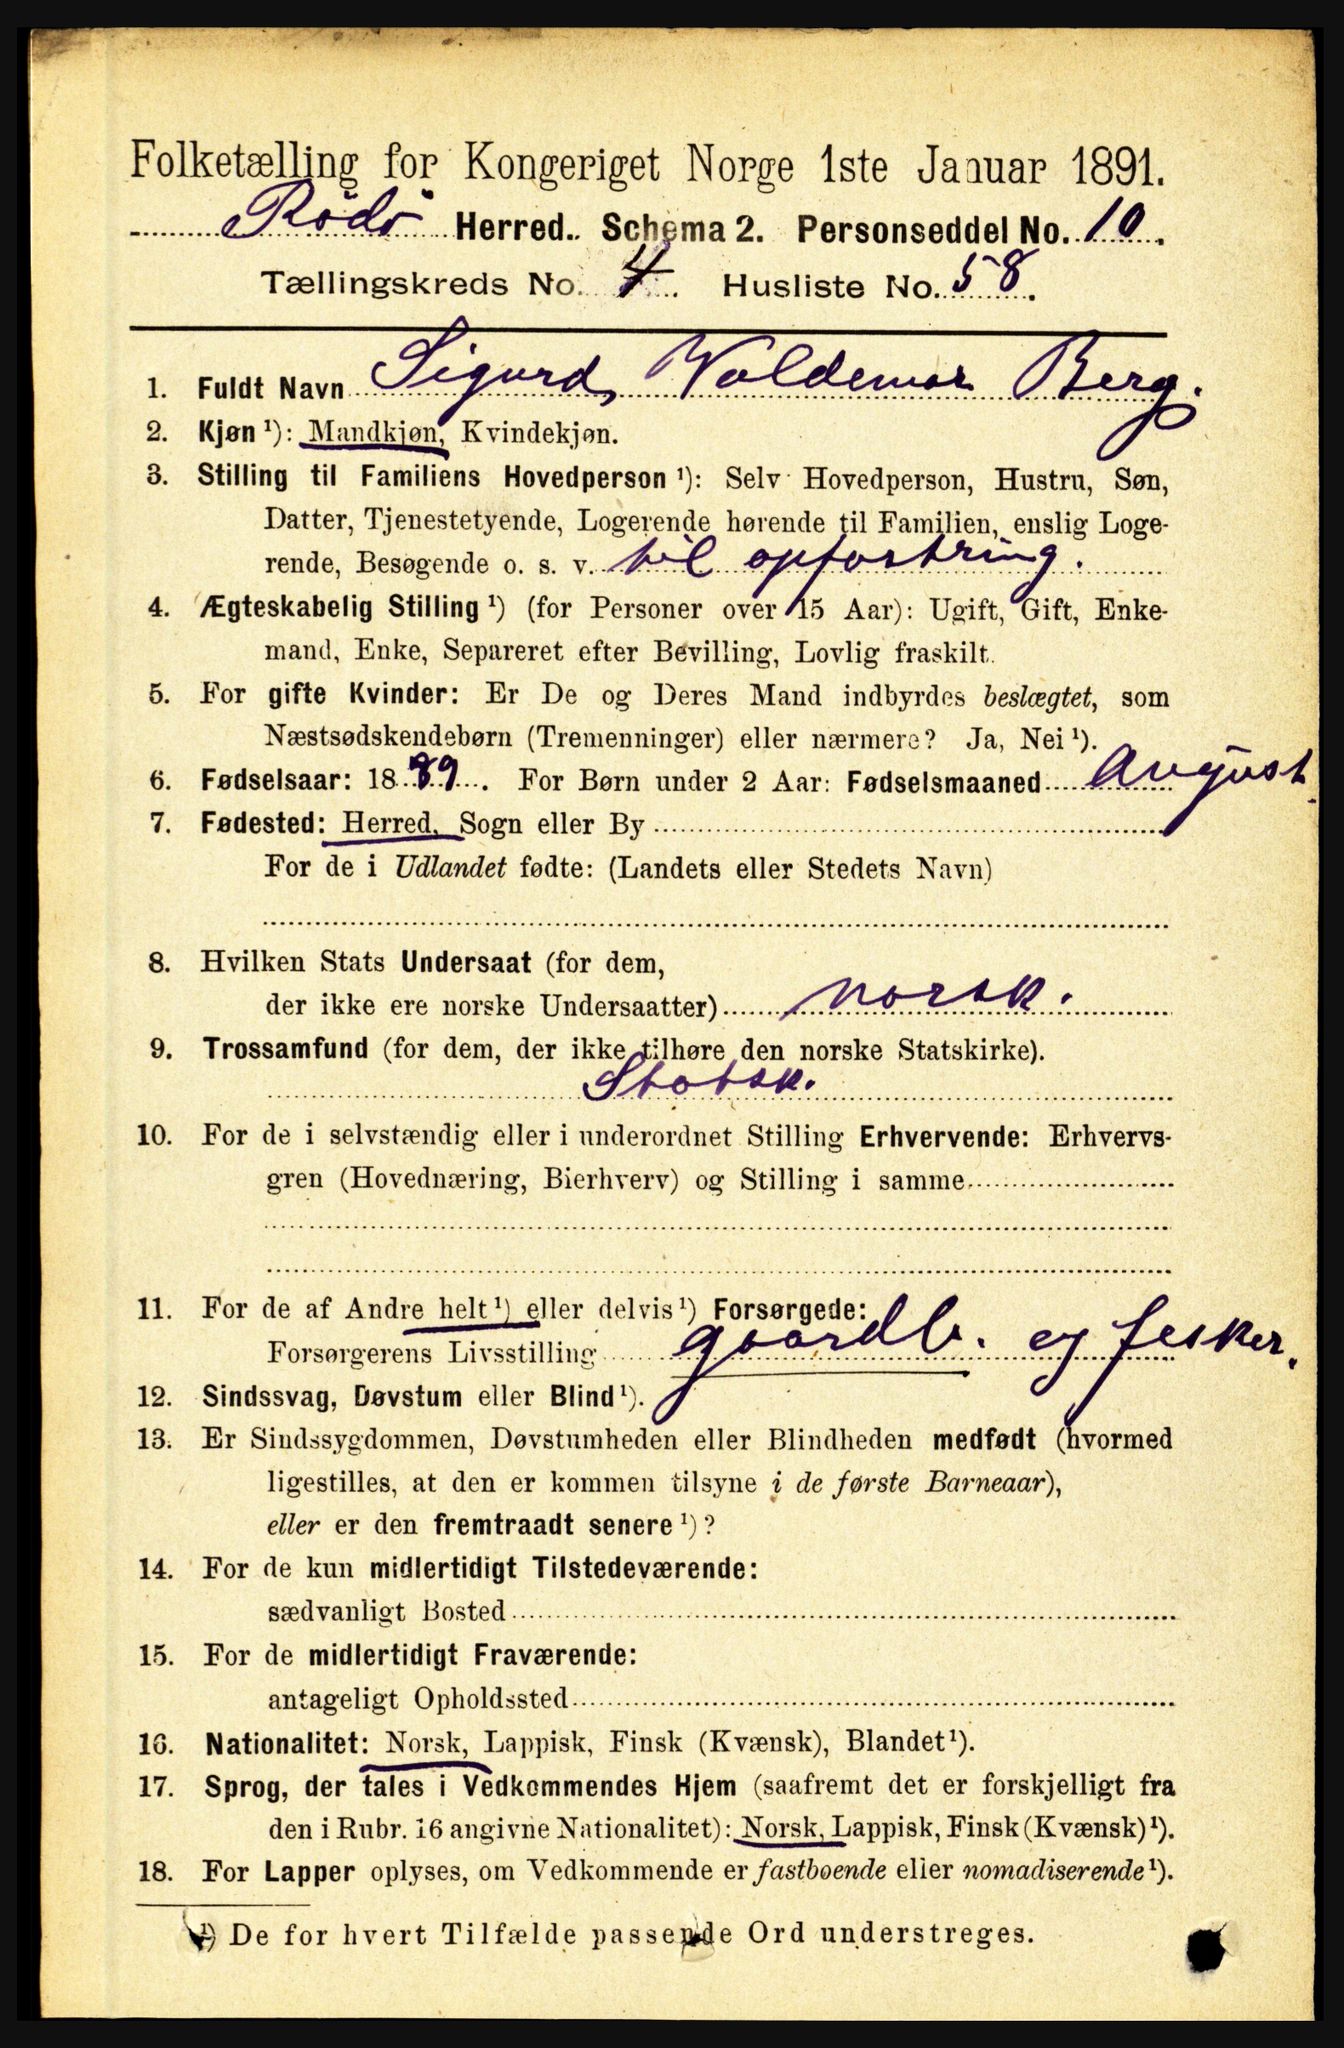 Folketælling for Kongeriget Norge 1ste Januar 1891.
Rödö Herred. Schema 2. Personseddel No. 10.
Tællingskreds No. 4. Husliste No. 58.
1. Fuldt Navn Sigurd Valdemar Berg.
2. Kjøn ¹): Mandkjøn, Kvindekjøn.
3. Stilling til Familiens Hovedperson ¹): Selv Hovedperson, Hustru, Søn,
Datter, Tjenestetyende, Logerende hørende til Familien, enslig Loge-
rende, Besøgende o. s. v. til opfostring.
4. Ægteskabelig Stilling ¹) (for Personer over 15 Aar): Ugift, Gift, Enke-
mand, Enke, Separeret efter Bevilling, Lovlig fraskilt.
5. For gifte Kvinder: Er De og Deres Mand indbyrdes beslægtet, som
Næstsødskendebørn (Tremenninger) eller nærmere? Ja, Nei ¹).
6. Fødselsaar: 1889. For Børn under 2 Aar: Fødselsmaaned August.
7. Fødested: Herred, Sogn eller By
For de i Udlandet fødte: (Landets eller Stedets Navn)
8. Hvilken Stats Undersaat (for dem,
der ikke ere norske Undersaatter) norsk.
9. Trossamfund (for dem, der ikke tilhøre den norske Statskirke).
Statsk.
10. For de i selvstændig eller i underordnet Stilling Erhvervende: Erhvervs-
gren (Hovednæring, Bierhverv) og Stilling i samme
11. For de af Andre helt ¹) eller delvis ¹) Forsørgede:
Forsørgerens Livsstilling gaardb. og fesker.
12. Sindssvag, Døvstum eller Blind ¹).
13. Er Sindssygdommen, Døvstumheden eller Blindheden medfødt (hvormed
ligestilles, at den er kommen tilsyne i de første Barneaar),
eller er den fremtraadt senere ¹)?
14. For de kun midlertidigt Tilstedeværende:
sædvanligt Bosted
15. For de midlertidigt Fraværende:
antageligt Opholdssted
16. Nationalitet: Norsk, Lappisk, Finsk (Kvænsk), Blandet ¹).
17. Sprog, der tales i Vedkommendes Hjem (saafremt det er forskjelligt fra
den i Rubr. 16 angivne Nationalitet): Norsk, Lappisk, Finsk (Kvænsk) ¹).
18. For Lapper oplyses, om Vedkommende er fastboende eller nomadiserende ¹).
¹) De for hvert Tilfælde passende Ord understreges.